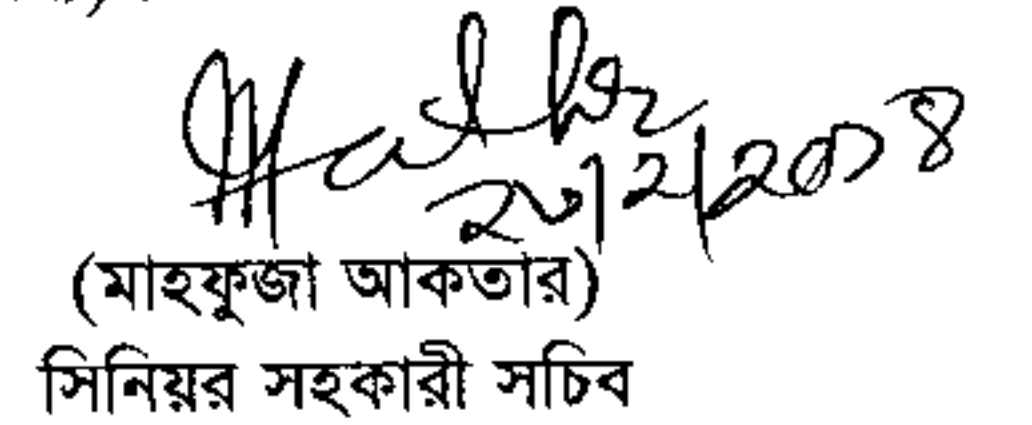 ২৩/২/২০১৪
(মাহফুজা আকতার)
সিনিয়র সহকারী সচিব